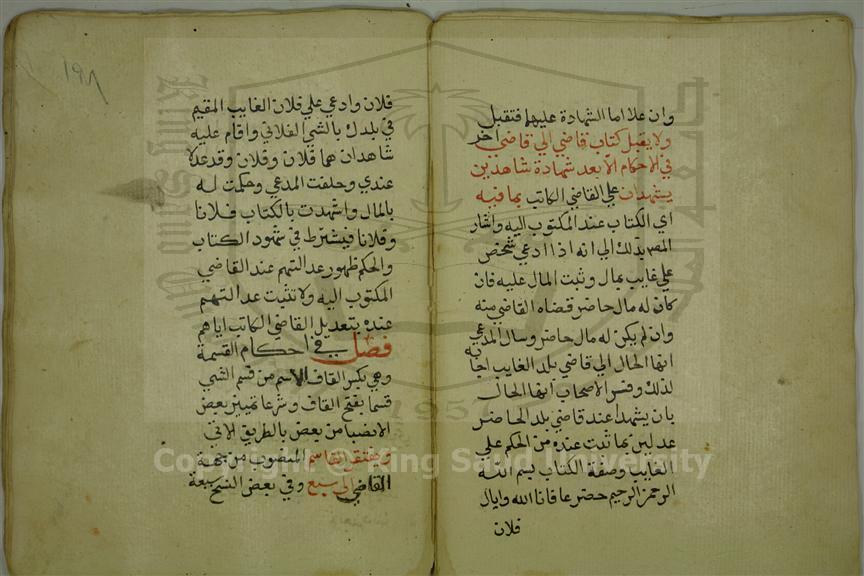 وان علا اما الشهادة عليهما فتقبل
ولا يقبل كتاب قاضي الي قاضي اخر
في الاحكام الا بعد شهادة شاهدين
يشهدان علي القاضي الكاتب بما فيه
اي الكتاب عند المكتوب اليه واشار
المصر بذلك الي انه اذا ادعي شخص
علي غايب بمال وثبت المال عليه فان
كان له مال حاضر قضاه القاضي منه
وان لم يكن له مال حاضر وسال المدعي
انها الحال الي قاضي بلد الغايب اجابه
لذلك وفسر الاصحاب انها الحال
بان يشهد عند قاضي بلد الحاضر
عدلين بما ثبت عنده من الحكم علي
الغايب وصفة الكتاب بسم الله
الرحمن الرحيم حضر عافانا الله واياك
فلان
١٩٨
فلان وادعي علي فلان الغايب المقيم
في بلدك بالشي الفلاني واقام عليه
شاهدان هما فلان وفلان وقد عدلا
عندي وحلفت المدعي وحكمت له
بالمال واشهدت بالكتاب فلانا
وفلانا فيشترط في شهود الكتاب
والحكم ظهور عدالتهم عند القاضي
المكتوب اليه ولا تثبت عدالتهم
عنده بتعديل القاضي الكاتب اياهم
فصل في احكام القسمة
وهي بكسر القاف الاسم من قسم الشي
قسما بفتح القاف وشرعا تمييز بعض
الانصبا من بعض بالطريق الاتي
ويفتقر القاسم المنصوب من جهة
القاضي الي سبع وفي بعض النسخ سبعة
Copyright © King Saud University
1957